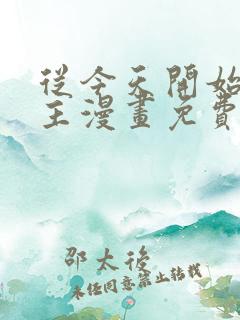 從今天開始
王漫畫免費
邵太後
未經同意禁止轉載